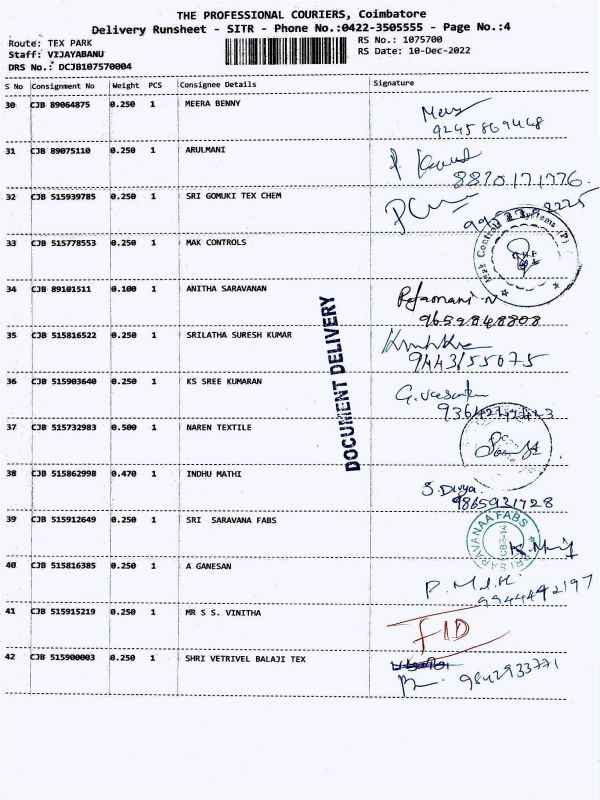 THE PROFESSIONAL COURIERS, Coimbatore
Delivery Runsheet - SITR - Phone No.:0422-3505555 - Page No.:4
Route: TEX PARK
Staff: VIJAYABANU
DRS No.: DCJB107570004
RS No.: 1075700
RS Date: 10-Dec-2022
S No Consignment No Weight PCS Consignee Details Signature
30 CJB 89064875 0.250 1 MEERA BENNY
9245869448
31 CJB 89075110 0.250 1 ARULMANI
8870171776
32 CJB 515939785 0.250 1 SRI GOMUKI TEX CHEM
33 CJB 515778553 0.250 1 MAK CONTROLS
Mak Controls & Systems (P)
34 CJB 89101511 0.100 1 ANITHA SARAVANAN
9659848808
35 CJB 515816522 0.250 1 SRILATHA SURESH KUMAR
9443155075
36 CJB 515903640 0.250 1 KS SREE KUMARAN
37 CJB 515732983 0.500 1 NAREN TEXTILE
38 CJB 515862998 0.470 1 INDHU MATHI
S. Divya
9865931728
39 CJB 515912649 0.250 1 SRI SARAVANA FABS
40 CJB 515816385 0.250 1 A GANESAN
9944442197
41 CJB 515915219 0.250 1 MR S S. VINITHA
42 CJB 515900003 0.250 1 SHRI VETRIVEL BALAJI TEX
9842933771
DOCUMENT DELIVERY